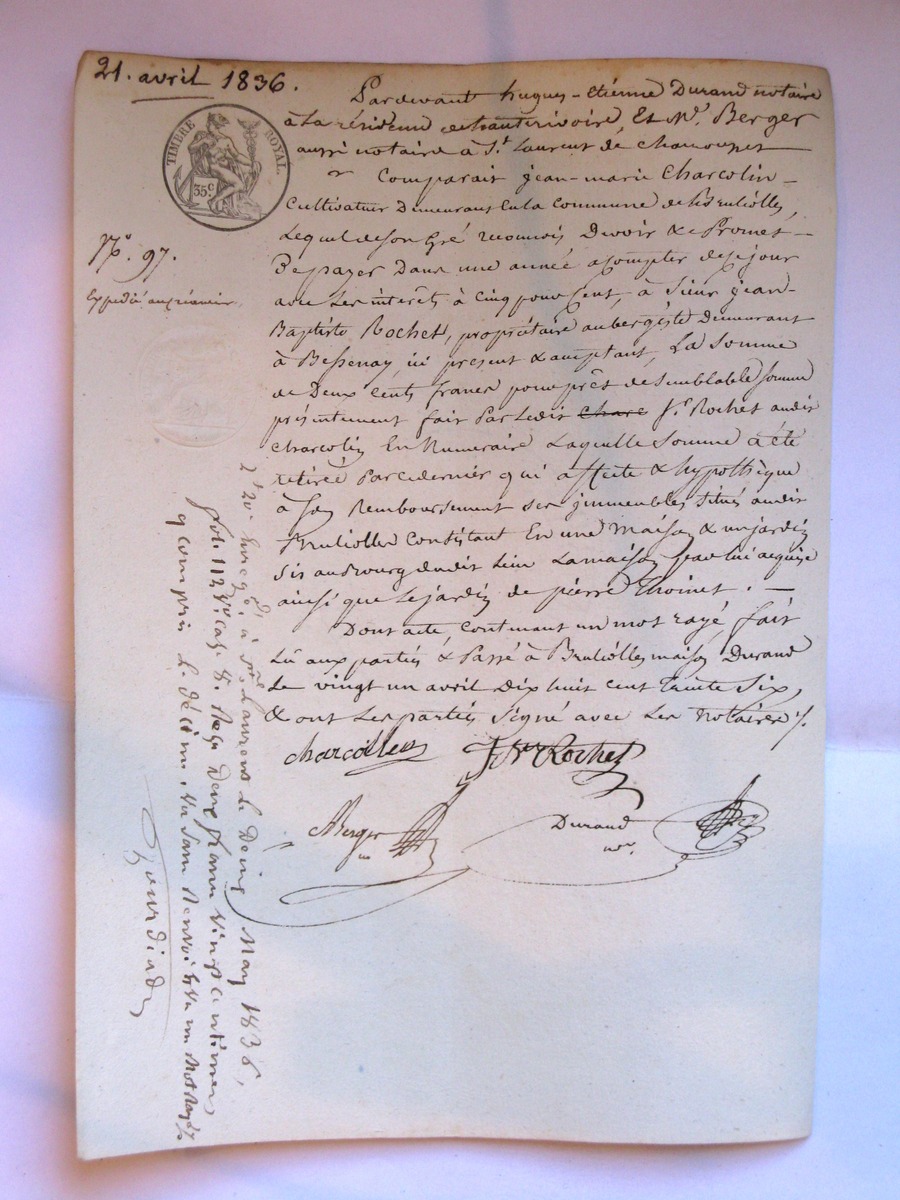 21. avril 1836.
TIMBRE ROYAL.
35c
No. 97.
Expédié au créancier
Pardevant hugues-etienne Durand notaire
à La résidence de hauterivoire, Et Me. Berger
aussi notaire à St. Laurent de Chamousset
Comparait jean-marie Charcolin
Cultivateur Demeurant En la Commune de Bruliolles,
Lequel de son Gré reconnois Devoir & Promet
De payer Dans une année a compter de ce jour
avec Les interêts à Cinq pour Cent, à Sieur jean-
Baptiste Rochet, propriétaire aubergiste Demeurant
à Bessenay, ici present & acceptant, La Somme
de Deux Cents francs pour prêt de Semblable Somme
présentement fait Par Ledit Charc Sr. Rochet audit
Charcolin En Numeraire Laquelle Somme à été
retirée Par ce dernier qui affecte & hypothèque
à Son Remboursement ses jmmeubles Situés audit
Brulliolles Consistant En une Maison & un jardin
Sis au Bourg dudit Lieu La maison par lui acquise
ainsi que Le jardin de pierre Thoinet.
Dont acte, Contenant un mot rayé, fait
Lu aux parties & Passé à Brulliolles maison Durand
Le vingt un avril Dix huit cent Trente Six,
& ont Les parties Signé avec Les notaires
Charcollin
Rochet
Berger
Durand
nre.
Enregé. à St. Laurent Le Deux May 1836,
fol. 112 Vo. Cas. 8. Reçu Deux francs Vingt centimes
y compris Le décime, Vu Sans Renvoi Et Un Mot Rayé